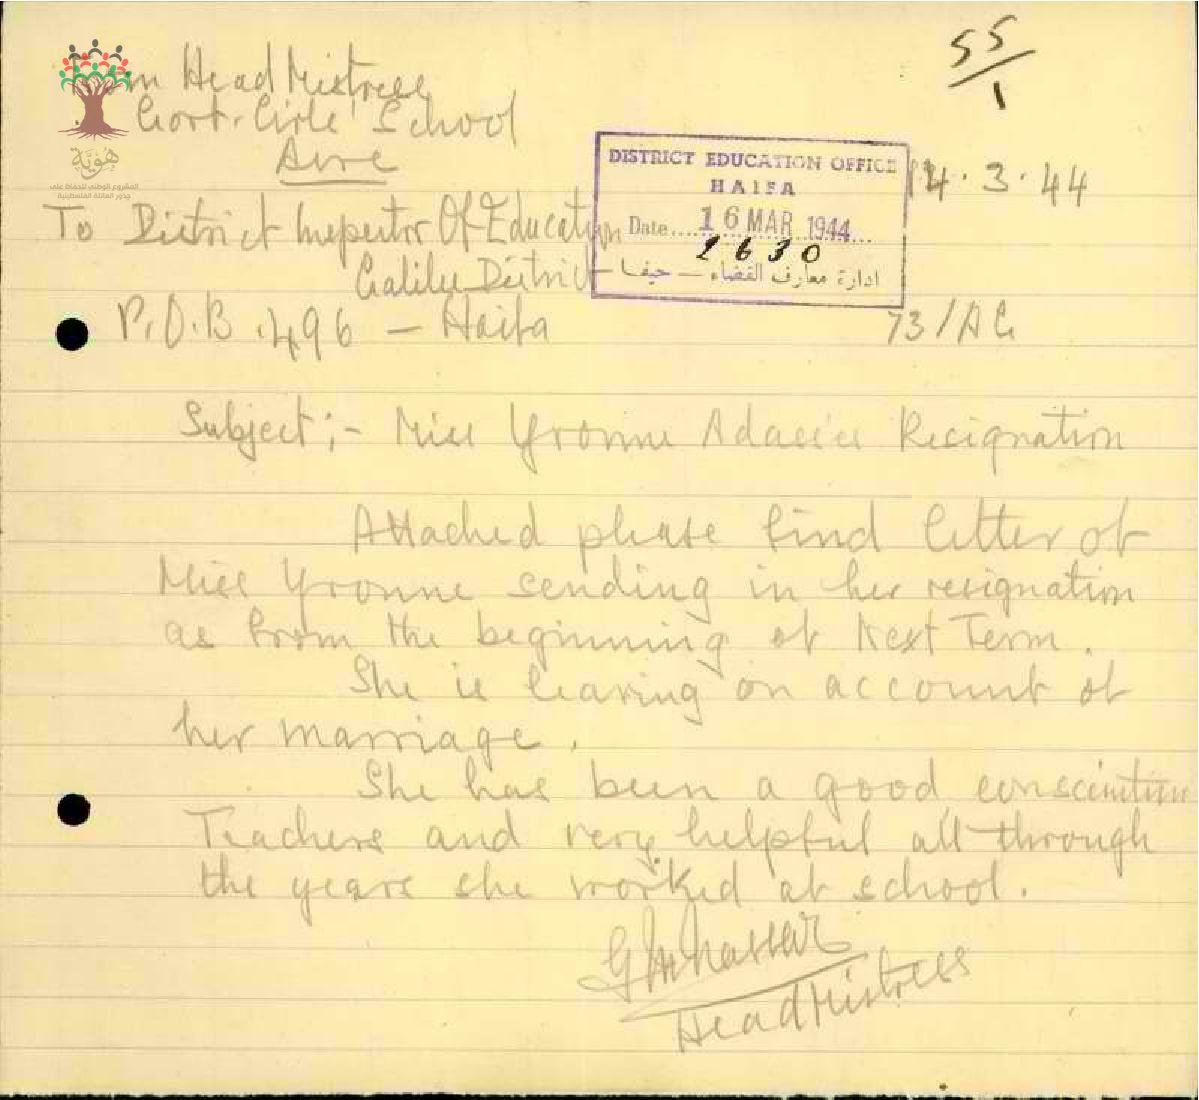 55/1
From Head Mistress
Govt. Girls' School
Acre
14.3.44
هوية
المشروع الوطني للحفاظ على
جذور العائلة الفلسطينية
DISTRICT EDUCATION OFFICE
HAIFA
Date.... 16 MAR 1944...
2630
ادارة معارف القضاء — حيفا
To District Inspector Of Education
Galilee District
P.O.B. 496 — Haifa
73/AG
Subject;- Miss Yvonne Resignation
Attached please find letter of
Miss Yvonne sending in her resignation
as from the beginning of Next Term.
She is leaving on account of
her marriage.
She has been a good
Teachers and very helpful all through
the years she worked at school.
Nassar
HeadMistress